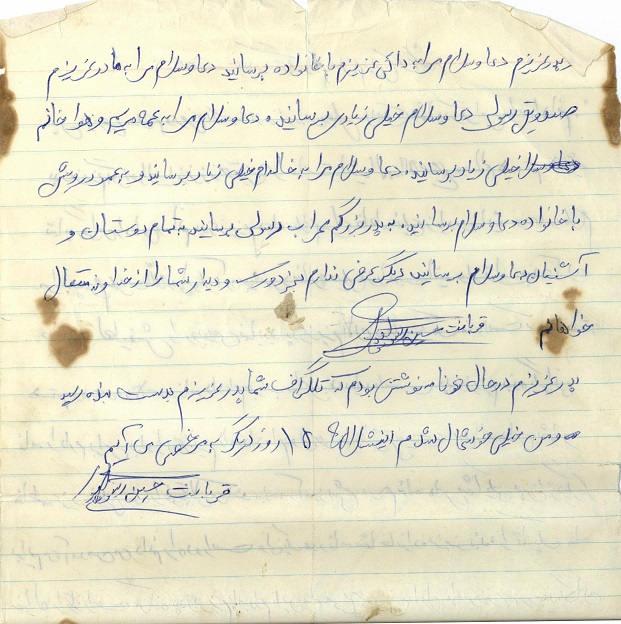 پدر عزیزم دعا و سلام مرا به دائی عزیزم با خانواده برسانید دعا و سلام مرا به مادر عزیزم
رسولی دعا و سلام خیلی زیادی برسانید، دعا و سلام مرا به عمه مریم و هوا خانم
خیلی زیاد برسانید، دعا و سلام مرا به خاله‌ام خیلی زیاد برسانید و به عمو درویش
با خانواده دعا و سلام برسانید، به پدر بزرگم محراب رسولی برسانید به تمام دوستان و
آشنایان دعا و سلام برسانید دیگر عرضی ندارم بجز دوریت و دیدار شما را از خداوند متعال
خواهانم قربانت حسین
پدر عزیزم در حال نوشتن بودم که تلگراف شما پدر عزیزم بدست بنده رسید
و من خیلی خوشحال شدم انشاالله روز دیگر به مرخصی می آیم
قربانت حسین